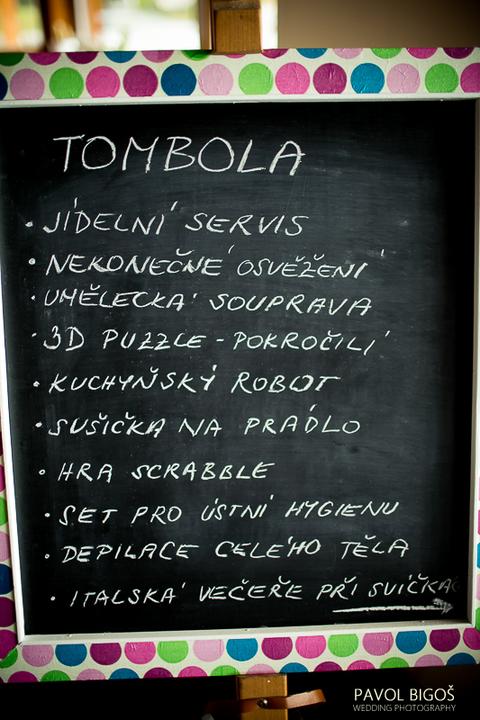 TOMBOLA
• JÍDELNÍ SERVIS
• NEKONEČNÉ OSVĚŽENÍ
• UMĚLECKÁ SOUPRAVA
• 3D PUZZLE - POKROČILÍ
• KUCHYŇSKÝ ROBOT
• SUŠIČKA NA PRÁDLO
• HRA SCRABBLE
• SET PRO ÚSTNÍ HYGIENU
• DEPILACE CELÉHO TĚLA
• ITALSKÁ VEČEŘE PŘI SVÍČKÁC
PAVOL BIGOŠ
WEDDING PHOTOGRAPHY